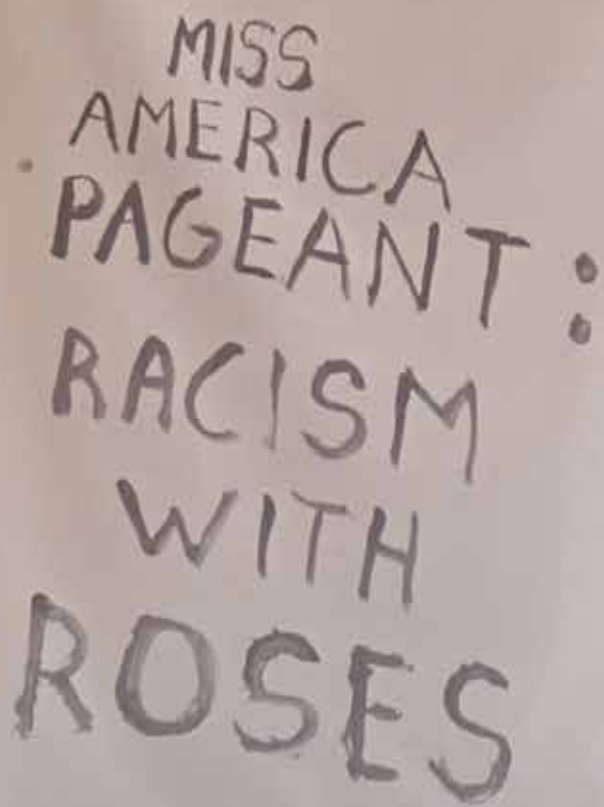 MISS
AMERICA
PAGEANT:
RACISM
WITH
ROSES